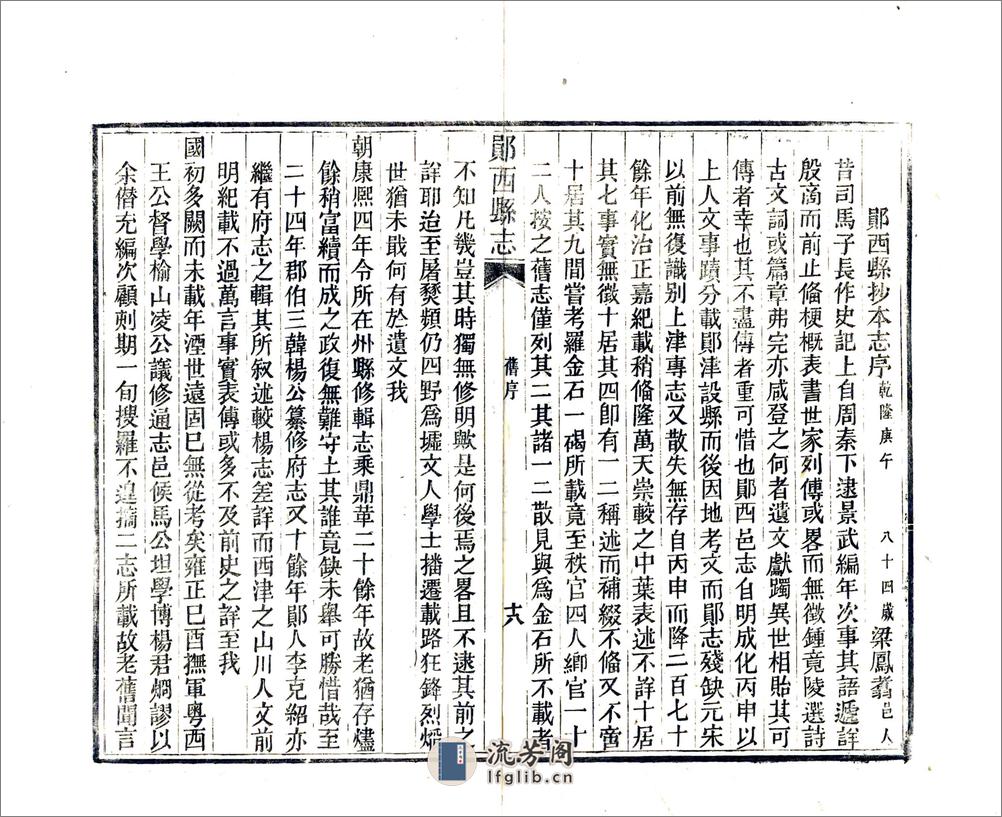 鄖西縣抄本志序 乾隆庚午 八十四歲 梁鳳翥 邑人
昔司馬子長作史記上自周秦下逮景武編年次事其語遞詳
殷商而前止偹梗概表書世家列傳或畧而無徵鍾竟陵選詩
古文詞或篇章弗完亦咸登之何者遺文獻蠲異世相貽其可
傳者幸也其不盡傳者重可惜也鄖西邑志自明成化丙申以
上人文事蹟分載鄖津設縣而後因地考文而鄖志殘缺元宋
以前無復識别上津專志又散失無存自丙申而降二百七十
餘年化治正嘉紀載稍偹隆萬天崇較之中葉表述不詳十居
其七事實無徵十居其四卽有一二稱述而補綴不偹又不啻
十居其九間嘗考羅金石一碣所載竟至秩官四人鄉官一十
二人按之舊志僅列其二其諸一二散見與爲金石所不載者
鄖西縣志 舊序 十六
不知凡幾豈其時獨無修明歟是何後焉之畧且不逮其前之
詳耶迨至屠燹頻仍四野爲墟文人學士播遷載路狂鋒烈熖
世猶未戢何有於遺文我
朝康熙四年令所在州縣修輯志乘鼎革二十餘年故老猶存燼
餘稍富續而成之政復無難守土其誰竟缺未舉可勝惜哉至
二十四年郡伯三韓楊公纂修府志又十餘年鄖人李克紹亦
繼有府志之輯其所叙述較楊志差詳而西津之山川人文前
明紀載不過萬言事實表傳或多不及前史之詳至我
國初多闕而未載年湮世遠固已無從考矣雍正已酉撫軍粤西
王公督學榆山凌公議修通志邑候馬公坦學博楊君烱謬以
余僭充編次顧刺期一旬搜羅不遑摛二志所載故老舊聞言
流芳阁
lfglib.cn